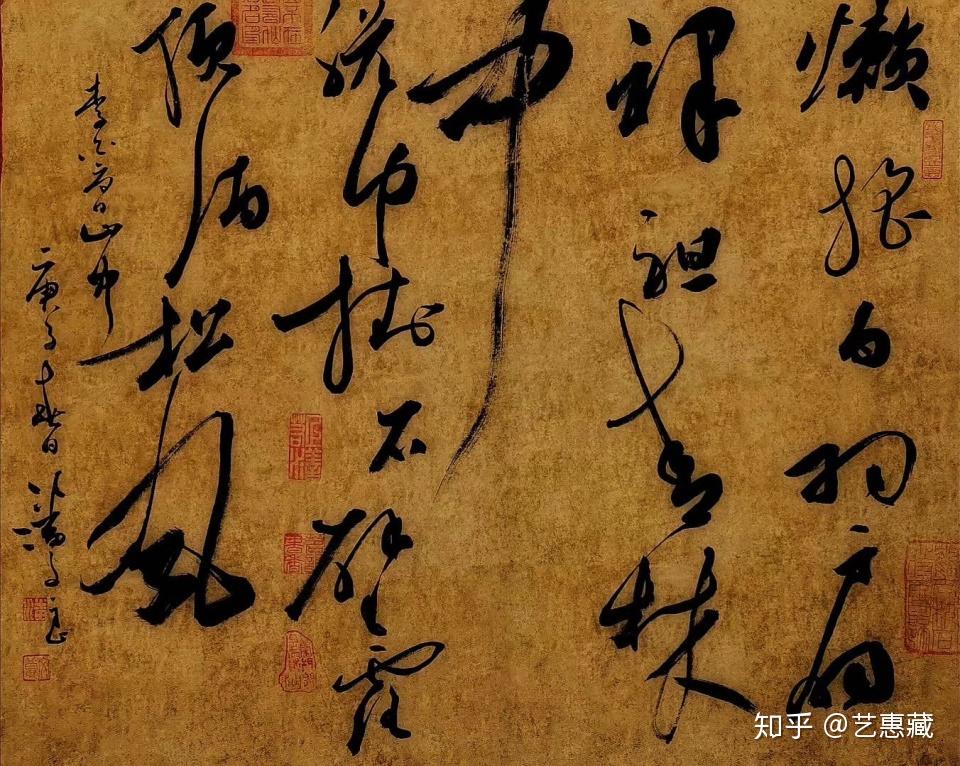 懒摇白羽扇
裸袒青林
中
脱巾挂石壁露
顶洒松风
李白夏日山中
庚子春日
知乎 @艺惠藏